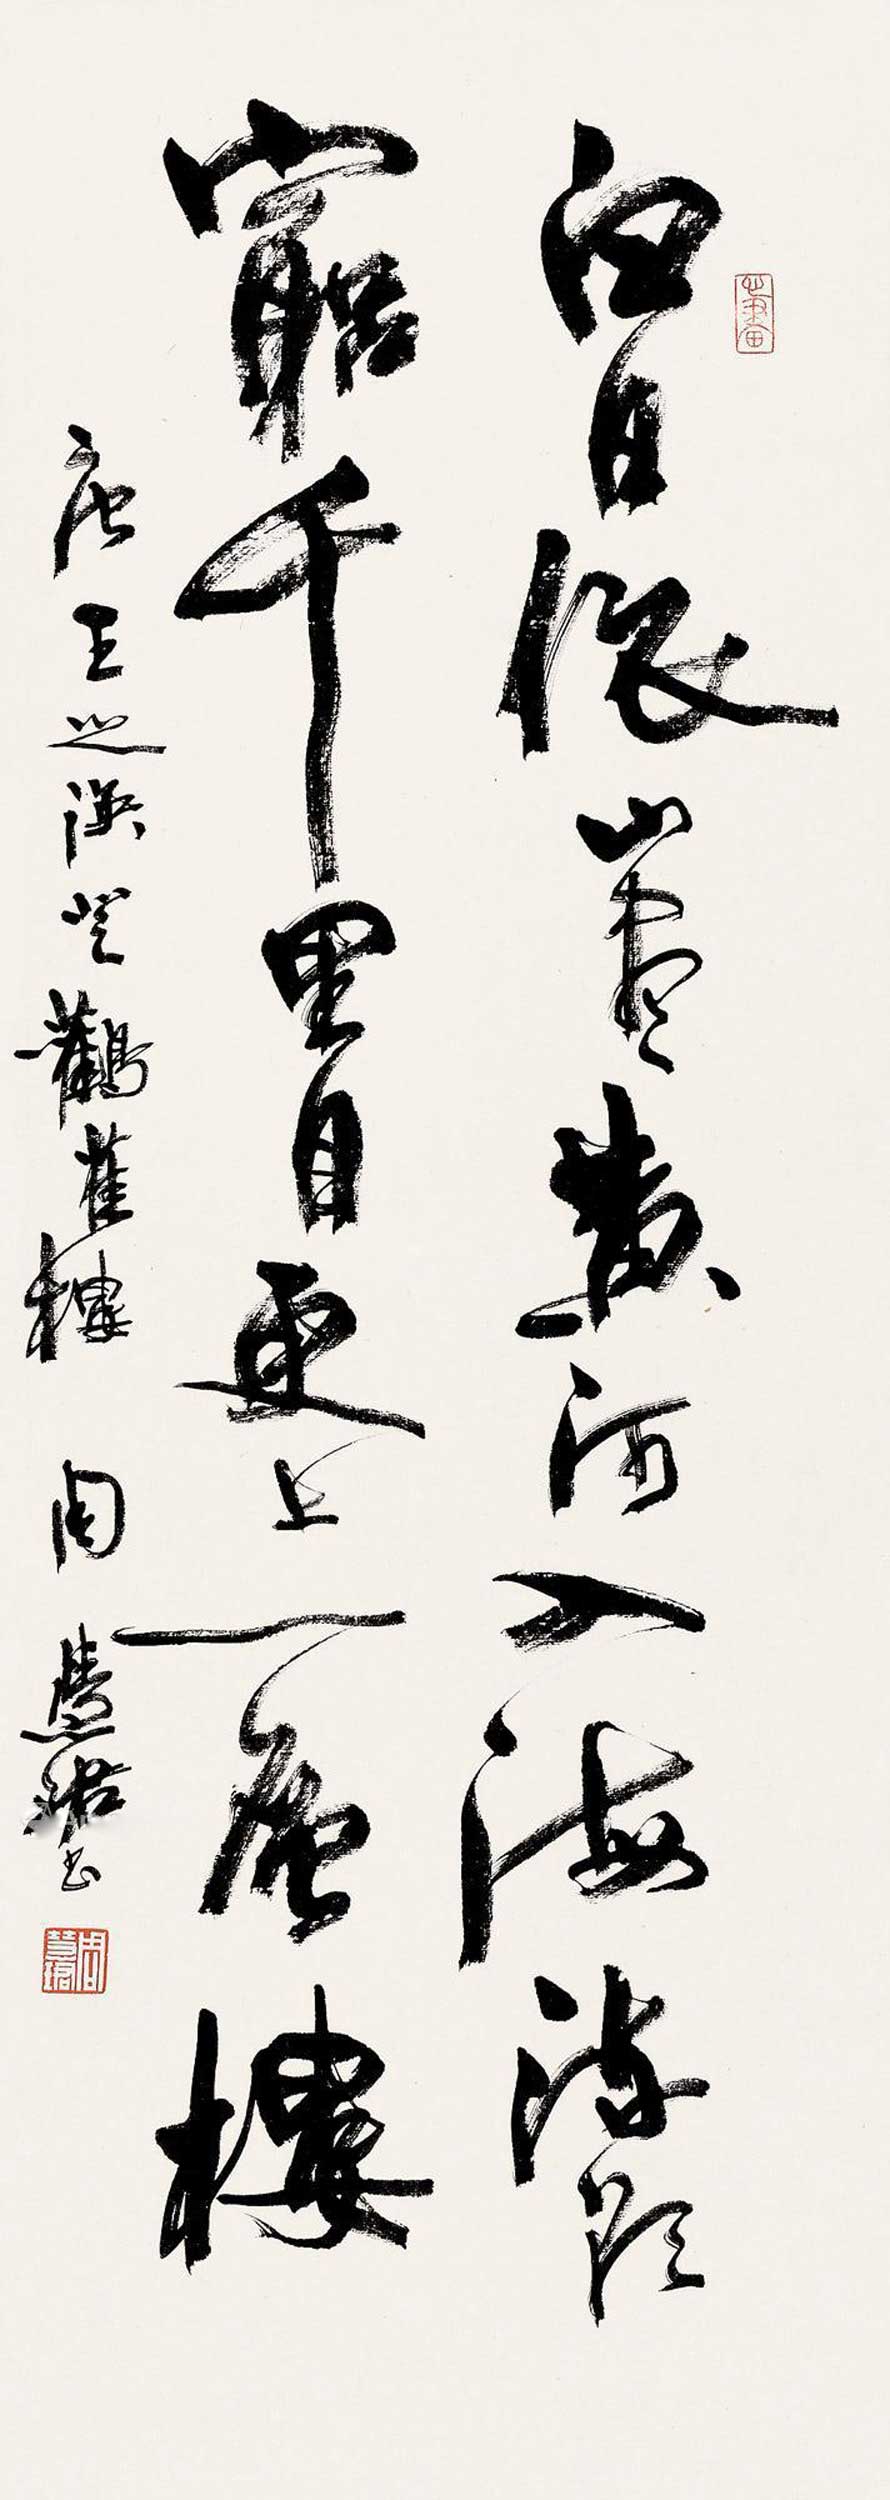 白日依山盡黃河入海流欲
窮千里目更上一層樓
唐王之渙登鸛雀樓 周慧珺書
周慧珺